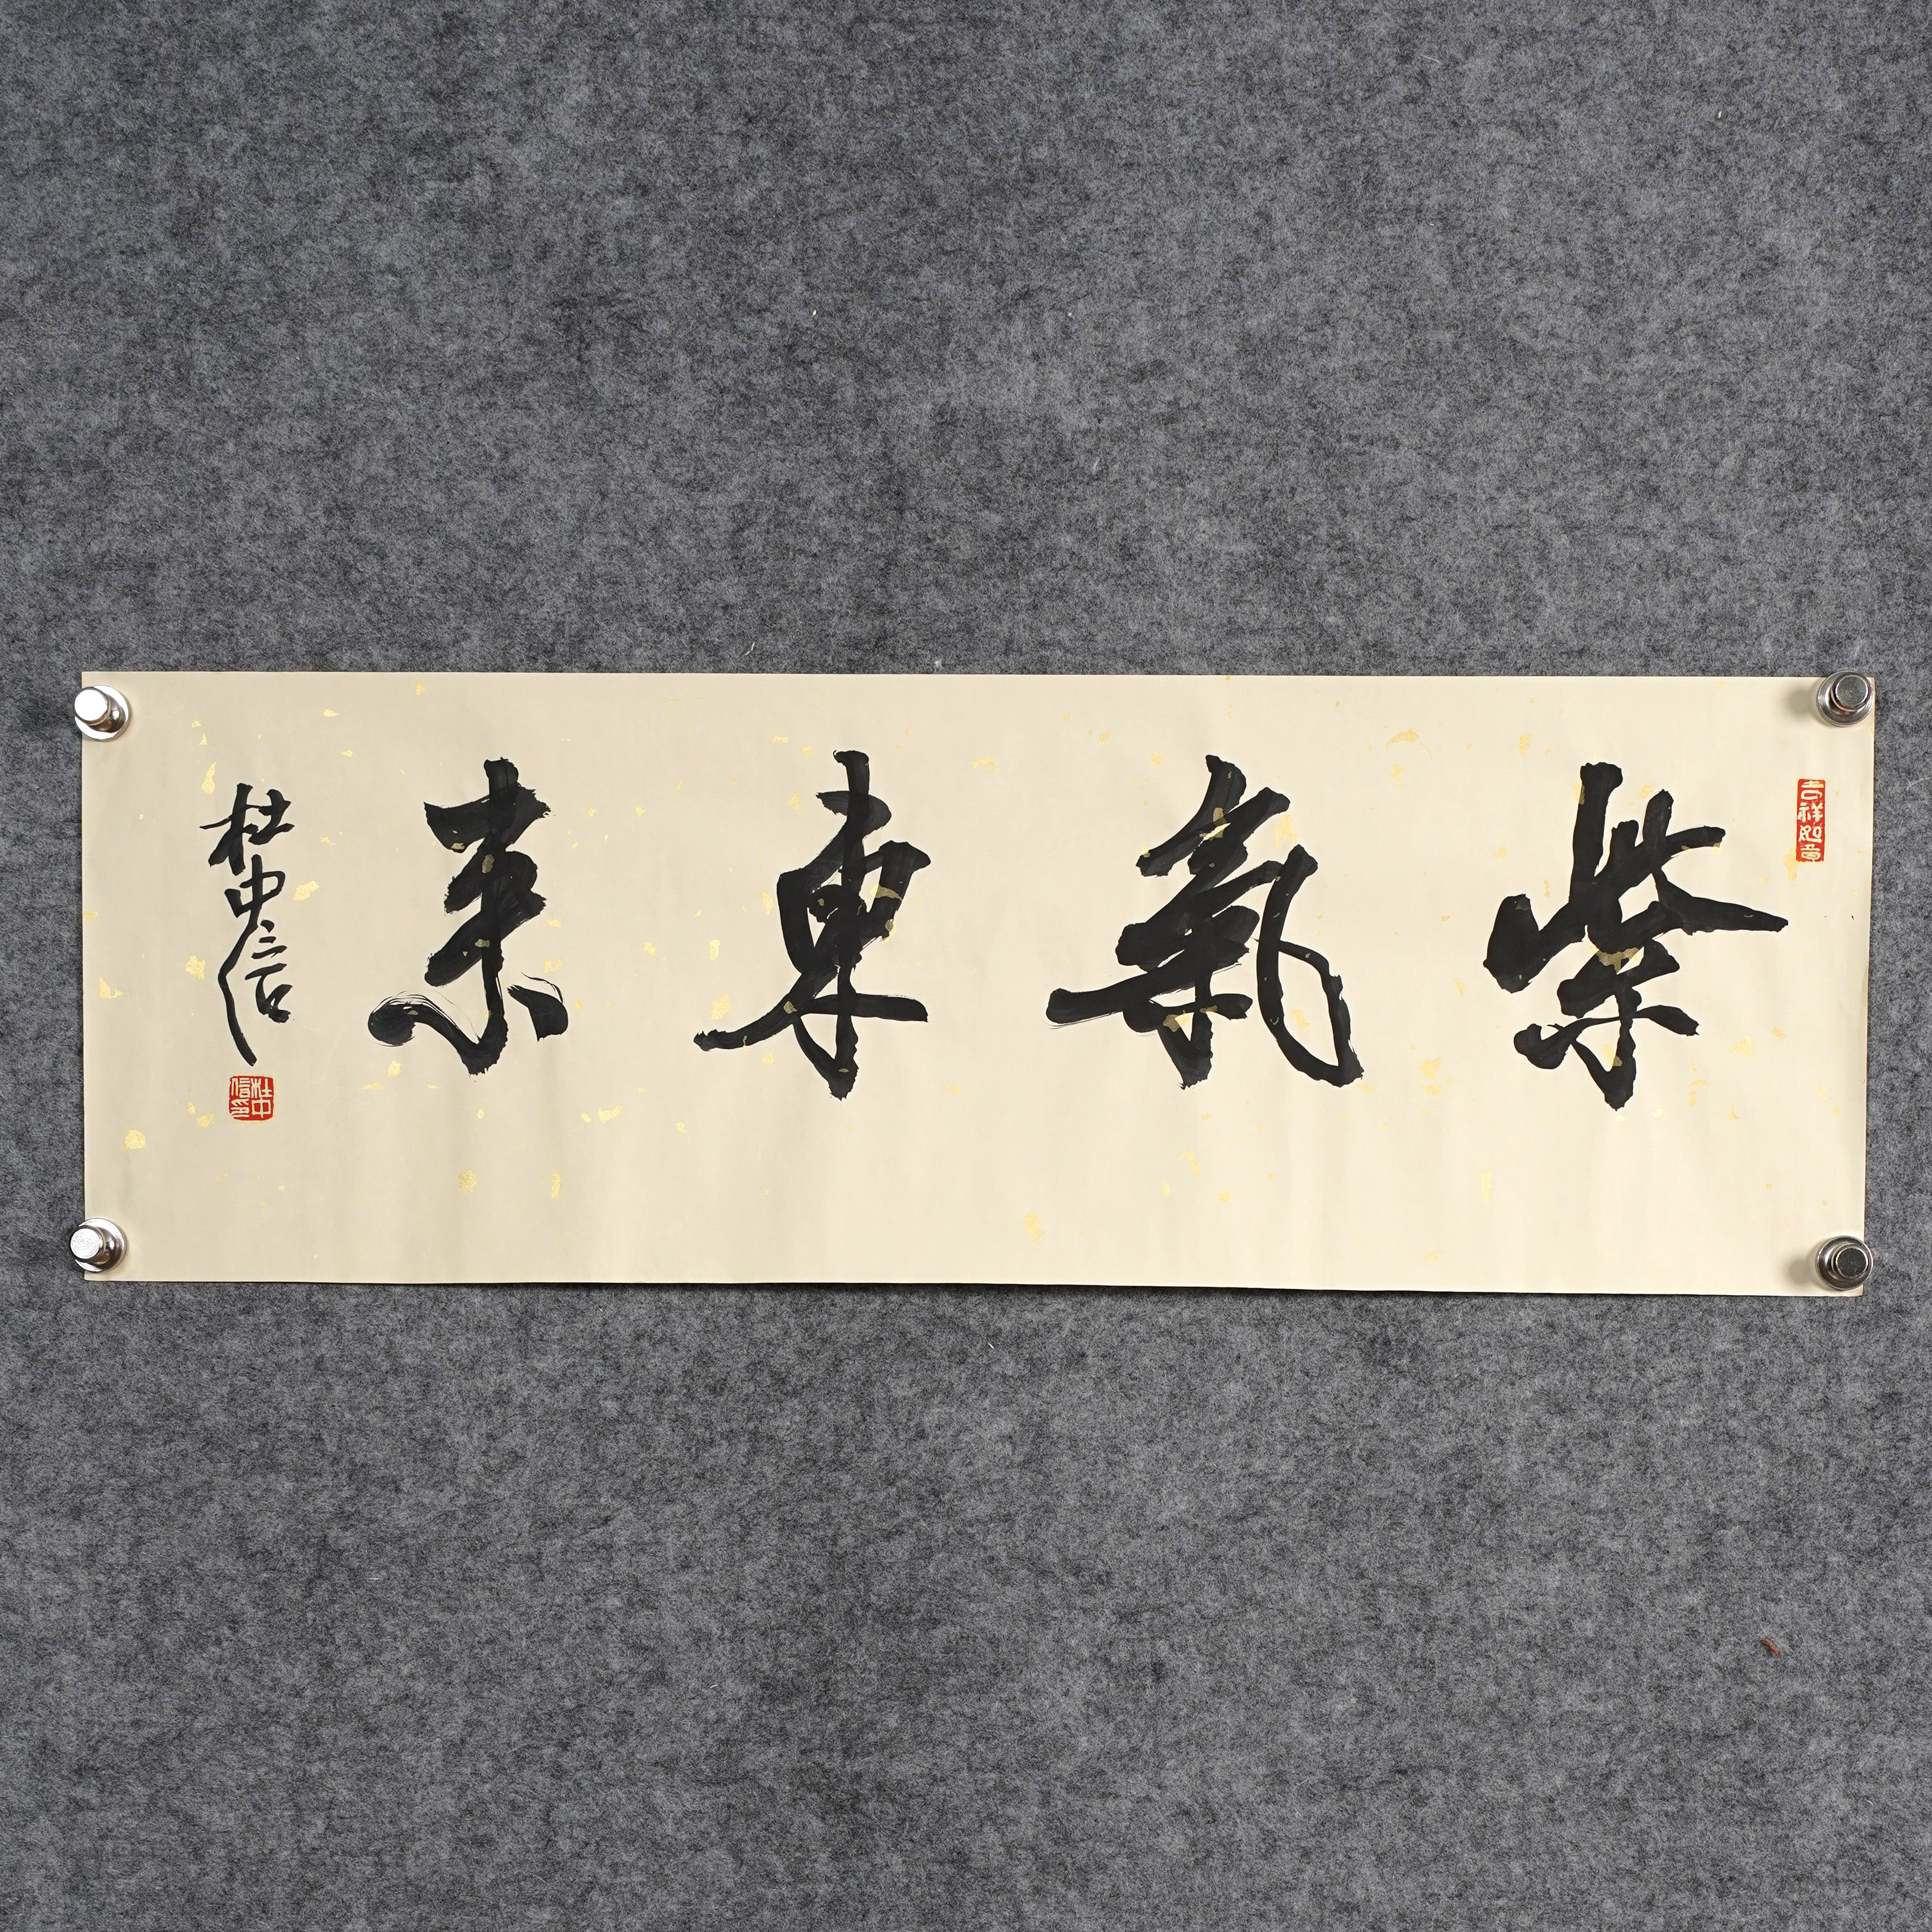 吉祥如意
紫氣東來
杜中信
杜中信印